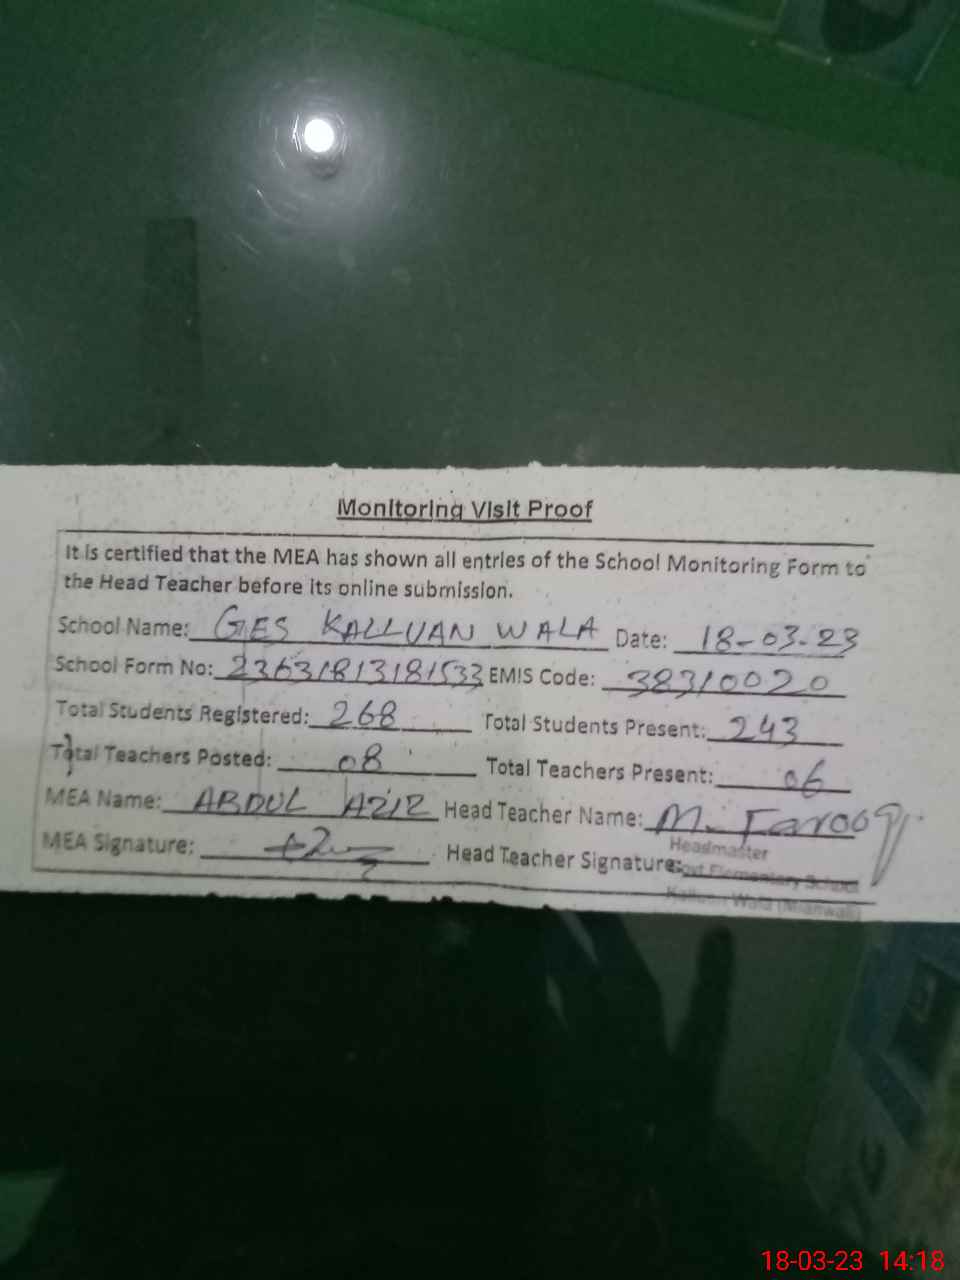 Monitoring Visit Proof
It is certified that the MEA has shown all entries of the School Monitoring Form to
the Head Teacher before its online submission.
School Name: GES KALLUAN WALA Date: 18-03-23
School Form No: 23631813181533 EMIS Code: 38310020
Total Students Registered: 268 Total Students Present: 243
Total Teachers Posted: 08 Total Teachers Present: 06
MEA Name: ABDUL AZIZ Head Teacher Name: M. Farooq
MEA Signature: Head Teacher Signature:
Headmaster
Govt Elementary School
Kalluan Wala (Mianwali)
18-03-23 14:18